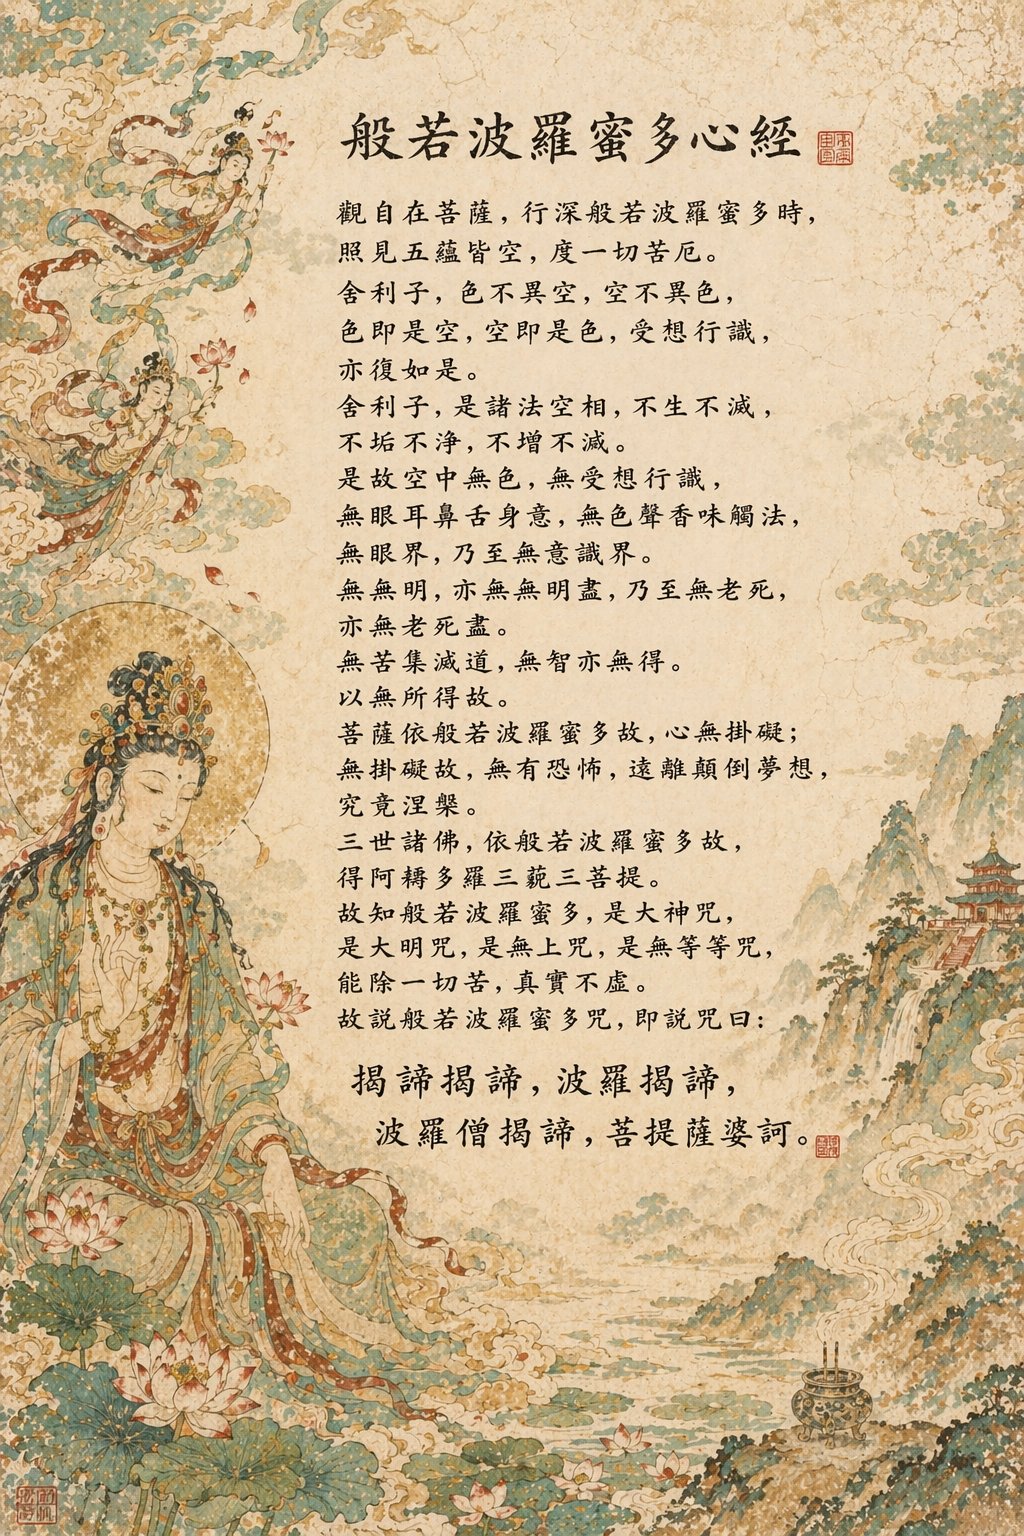 般若波羅蜜多心經
觀自在菩薩，行深般若波羅蜜多時，
照見五蘊皆空，度一切苦厄。
舍利子，色不異空，空不異色，
色即是空，空即是色，受想行識，
亦復如是。
舍利子，是諸法空相，不生不滅，
不垢不淨，不增不減。
是故空中無色，無受想行識，
無眼耳鼻舌身意，無色聲香味觸法，
無眼界，乃至無意識界。
無無明，亦無無明盡，乃至無老死，
亦無老死盡。
無苦集滅道，無智亦無得。
以無所得故。
菩薩依般若波羅蜜多故，心無掛礙；
無掛礙故，無有恐怖，遠離顛倒夢想，
究竟涅槃。
三世諸佛，依般若波羅蜜多故，
得阿耨多羅三藐三菩提。
故知般若波羅蜜多，是大神咒，
是大明咒，是無上咒，是無等等咒，
能除一切苦，真實不虛。
故説般若波羅蜜多咒，即説咒曰：
揭諦揭諦，波羅揭諦，
波羅僧揭諦，菩提薩婆訶。